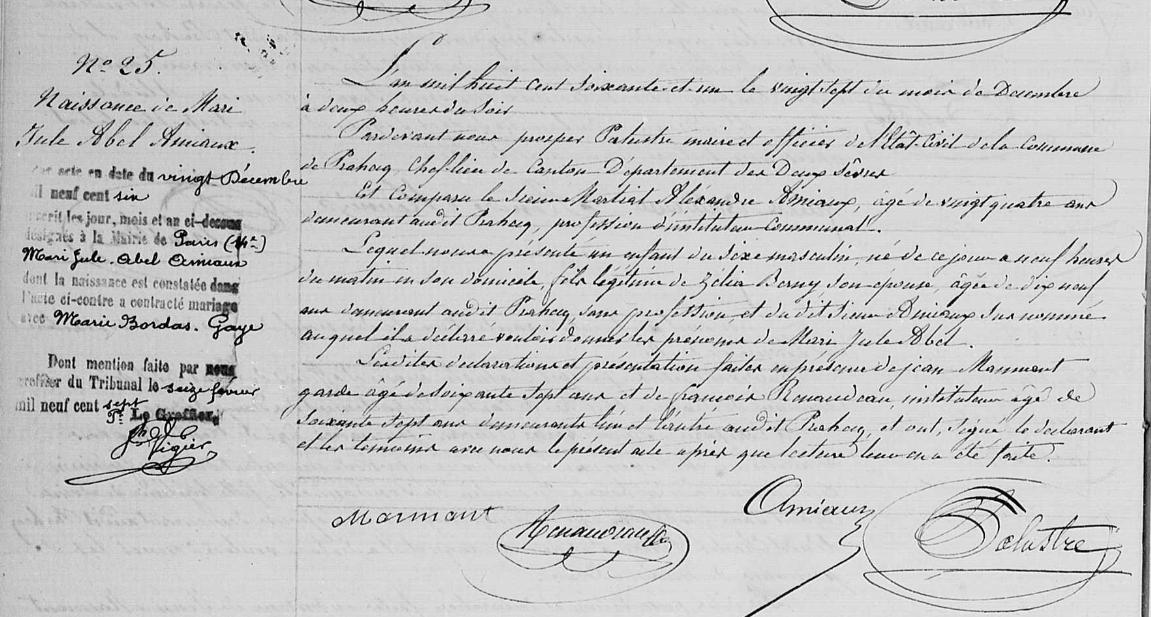 N° 25.
Naissance de Mari
Jule Abel Amiaux.
acte en date du vingt Décembre
mil neuf cent six
inscrit les jour, mois et an ci-dessus
désignés à la Mairie de Paris (14e)
Mari Jule Abel Amiaux
dont la naissance est constatée dans
l'acte ci-contre a contracté mariage
avec Marie Bordas. Gaye
Dont mention faite par nous
greffier du Tribunal le seize février
mil neuf cent sept
Le Greffier,
Vigier
L'an mil huit cent soixante et un le vingt sept du mois de Décembre
à deux heures du soir
Pardevant nous prosper Palustre maire et officier de l'Etat-Civil de la Commune
de Prahecq, Chef-lieu de Canton Département des Deux Sèvres
Est comparu le sieur Martial Aléxandre Amiaux, âgé de vingt quatre ans
demeurant audit Prahecq, profession d'instituteur Communal.
Lequel nous a présenté un enfant du sexe masculin, né de ce jour a neuf heures
du matin en son domicile, fils légitime de Zélia Berny son épouse, âgée de dix neuf
ans demeurant audit Prahecq sans profession et du dit sieur Amiaux sus nommé
auquel il a déclaré vouloir donner les prenoms de Mari Jule Abel.
Lesdites déclaration et présentation faites en présence de jean Marmant
garde âgé de soixante sept ans et de francois Renaudeau instituteur âgé de
soixante sept ans demeurants l'un et l'autre audit Prahecq, et ont, signé le déclarant
et les témoins avec nous le présent acte après que lecture leur en a été faite.
Marmant
Renaudeau
Amiaux
Palustre